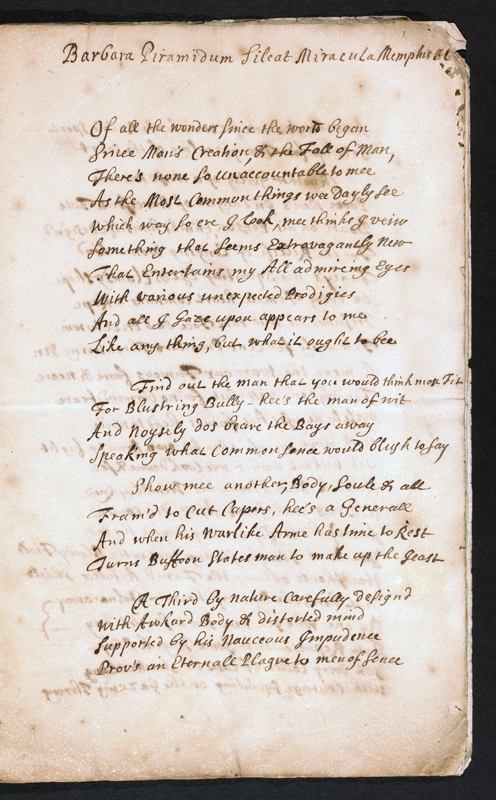 Barbara Piramidum Sileat Miracula Memphis &c
Of all the wonders since the world began
Since Man's Creation, & the Fall of Man,
There's none so unaccountable to mee
As the Most Common things wee dayly see
Which way so ere I look, mee thinks I veiw
Something that seems Extravagantly New
That Entertains my All admireing Eyes
With various unexpected Prodigies
And all I Gaze upon appears to me
Like any thing, but what it ought to bee
Find out the man that you would think most Fit
For Blustring Bully - hee's the man of wit
And Noysely dos beare the Bays away
Speaking what Common sence would blush to say
Show mee another, Body, Soule & all
Fram'd to Cut Capers, hee's a Generall
And when his Warlike Arme has time to Rest
Turns Buffoon Statesman to make up the Jeast
A Third by nature Carefully design'd
With Awkard Body & distorted mind
Supported by his Nauceous Impudence
Prov's an Eternall Plague to men of sence